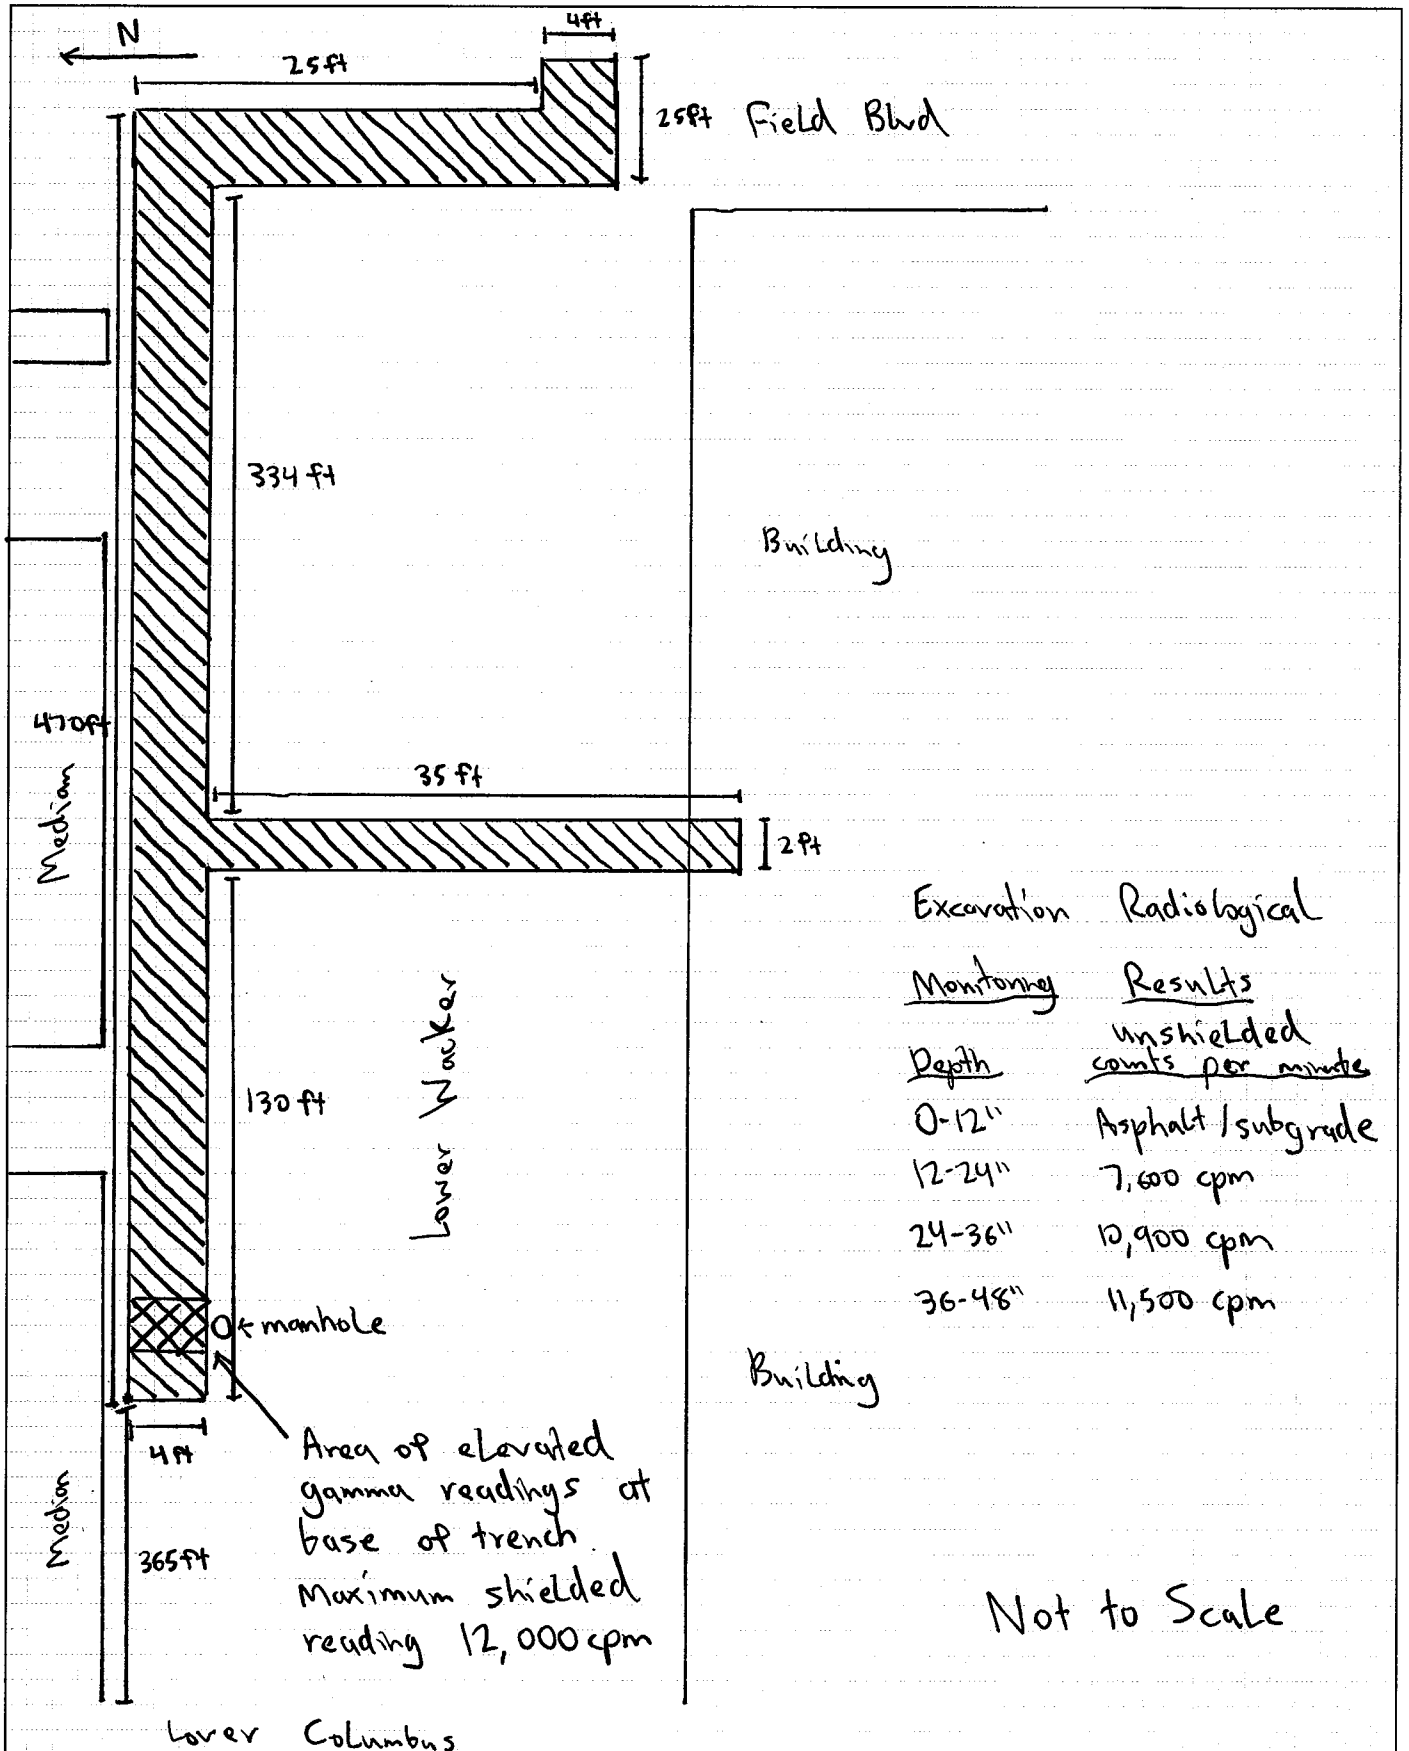 N
4ft
25ft
25ft Field Blvd
334 ft
Building
470ft
Median
35 ft
2ft
Excavation Radiological
Monitoring Results
unshielded
Depth counts per minute
0-12" Asphalt/subgrade
12-24" 7,600 cpm
24-36" 10,900 cpm
36-48" 11,500 cpm
Lower Wacker
130 ft
O ← manhole
Building
4ft
Area of elevated
gamma readings at
base of trench.
Maximum shielded
reading 12,000 cpm
Median
365ft
Not to Scale
Lower Columbus